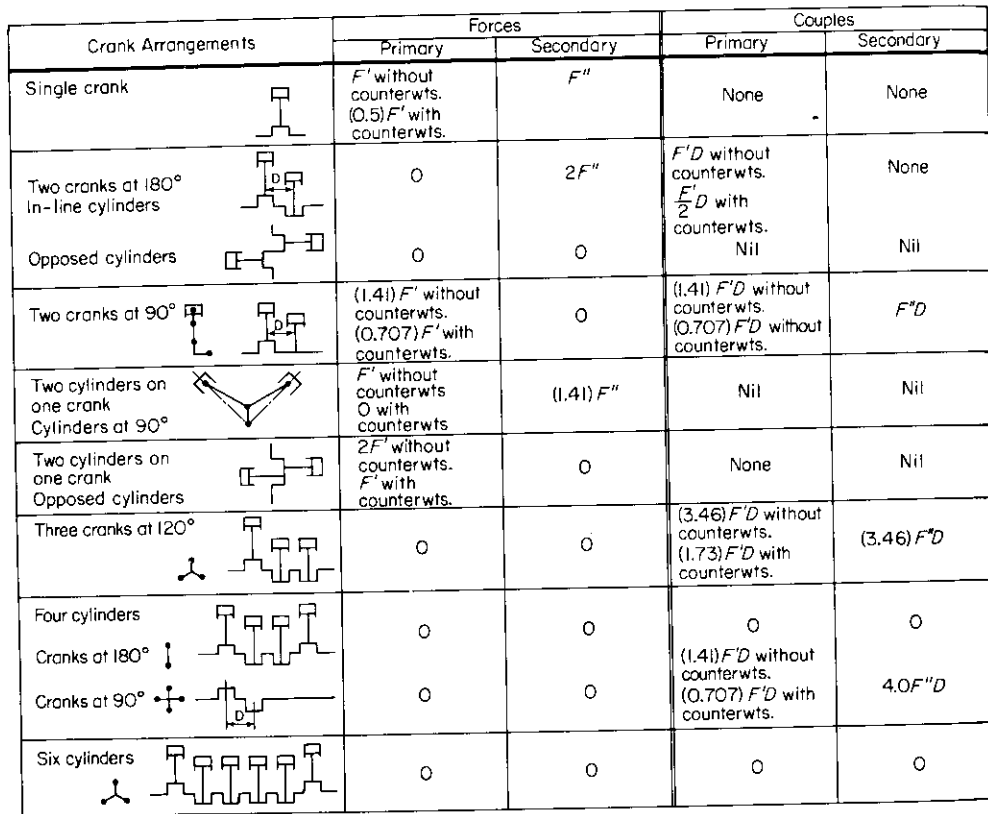 Crank Arrangements
Forces
Couples
Primary
Secondary
Primary
Secondary
Single crank
F' without
counterwts.
(0.5)F' with
counterwts.
F"
None
None
Two cranks at 180°
In-line cylinders
D
O
2F"
F'D without
counterwts.
F'/2 D with
counterwts.
None
Opposed cylinders
O
O
Nil
Nil
Two cranks at 90°
D
(1.41)F' without
counterwts.
(0.707)F' with
counterwts.
O
(1.41) F'D without
counterwts.
(0.707) F'D without
F"D
Two cylinders on
one crank
Cylinders at 90°
F' without
counterwts
O with
counterwts
(1.41)F"
Nil
Nil
Two cylinders on
one crank
Opposed cylinders
2F' without
counterwts.
F' with
counterwts.
O
None
Nil
Three cranks at 120°
O
O
(3.46)F'D without
counterwts.
(1.73)F'D with
counterwts.
(3.46)F"D
Four cylinders
Cranks at 180°
O
O
O
O
Cranks at 90°
D
O
O
(1.41)F'D without
counterwts.
(0.707) F'D with
counterwts.
4.0F"D
Six cylinders
O
O
O
O